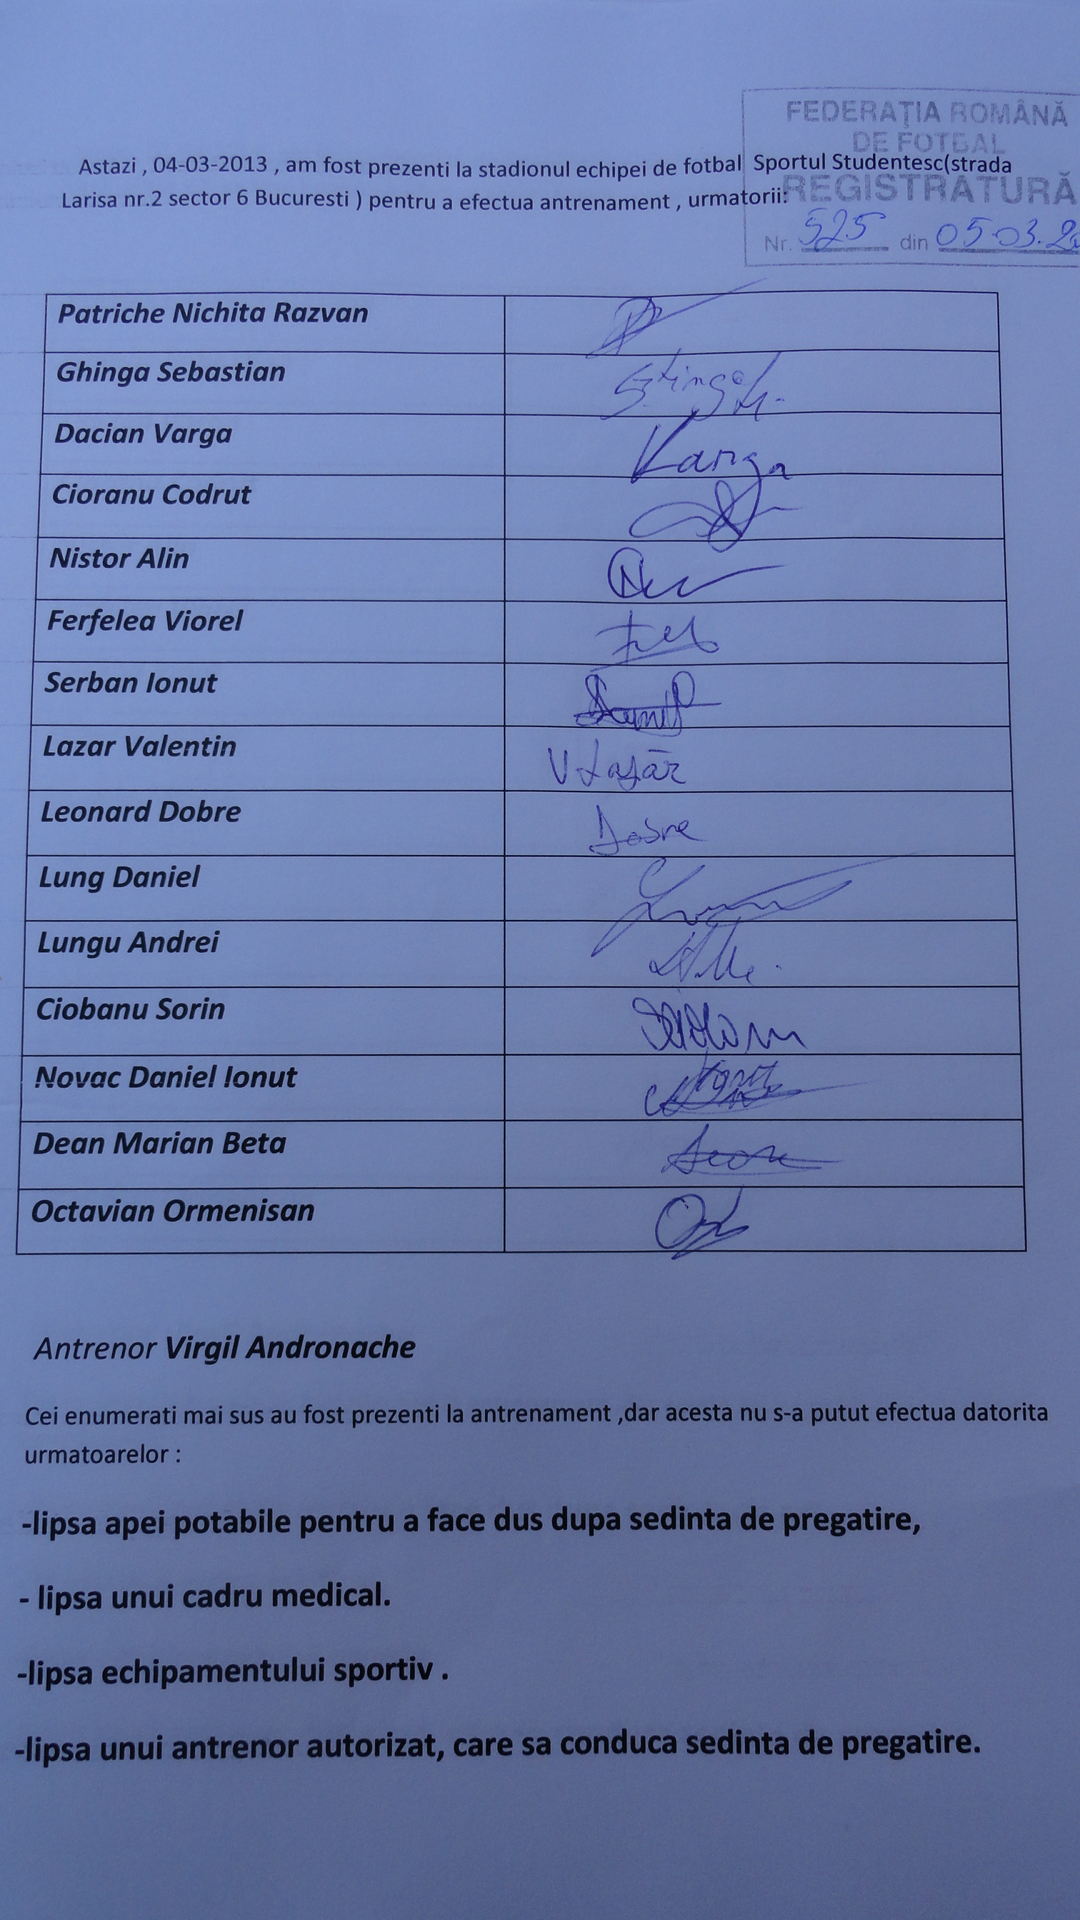 FEDERAȚIA ROMÂNĂ
DE FOTBAL
REGISTRATURĂ
Nr. 525 din 05-03.
Astazi , 04-03-2013 , am fost prezenti la stadionul echipei de fotbal Sportul Studentesc(strada
Larisa nr.2 sector 6 Bucuresti ) pentru a efectua antrenament , urmatorii:
Patriche Nichita Razvan
Ghinga Sebastian
Dacian Varga Varga
Cioranu Codrut
Nistor Alin
Ferfelea Viorel
Serban Ionut
Lazar Valentin V Lazăr
Leonard Dobre Dobre
Lung Daniel
Lungu Andrei
Ciobanu Sorin
Novac Daniel Ionut
Dean Marian Beta
Octavian Ormenisan
Antrenor Virgil Andronache
Cei enumerati mai sus au fost prezenti la antrenament ,dar acesta nu s-a putut efectua datorita
urmatoarelor :
-lipsa apei potabile pentru a face dus dupa sedinta de pregatire,
- lipsa unui cadru medical.
-lipsa echipamentului sportiv .
-lipsa unui antrenor autorizat, care sa conduca sedinta de pregatire.